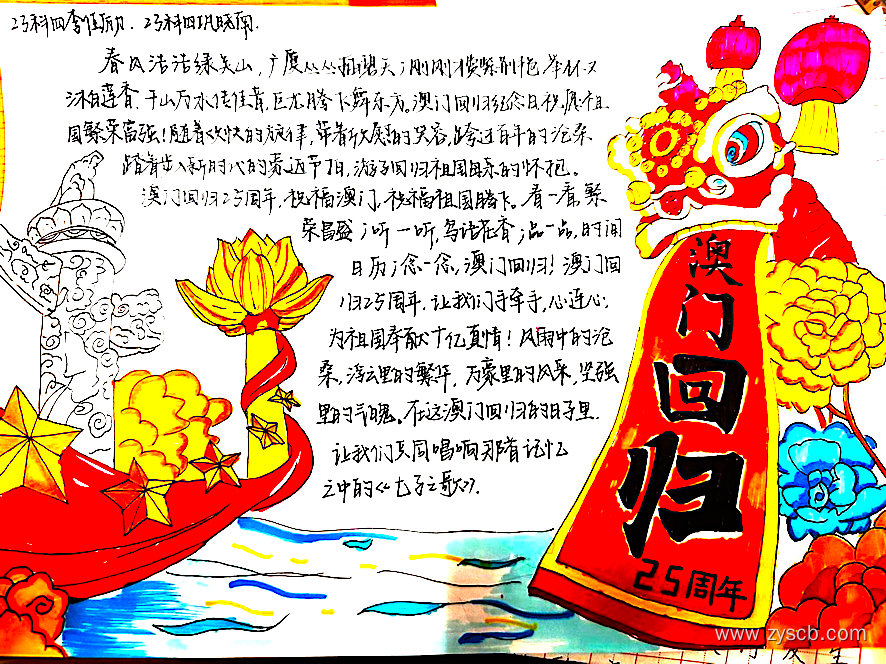 23科四李佳励. 23科四巩晓南.
春风洁洁绿关山，广厦丛丛拥碧天；刚刚才 别 举杯又
沐白莲香，千山万水传佳音，巨龙腾飞舞东方。澳门回归纪念日祝愿祖
国繁荣富强！随着欢快的旋律，带着 的笑容，跨过百年的沧桑
踏着步入新时代的豪迈节拍，游子回归祖国母亲的怀抱。
澳门回归25周年，祝福澳门，祝福祖国腾飞。看一看，繁
荣昌盛；听一听，鸟语花香；品一品，时间
日历；念一念，澳门回归！澳门回
归25周年，让我们手牵手，心连心，
为祖国奉献十亿真情！风雨中的沧
桑，浮云里的繁华，万豪里的风采，坚强
里的气魄。在这澳门回归的日子里
让我们共同唱响那首记忆
之中的《七子之歌》.
澳门回归
25周年
www.zyscb.com